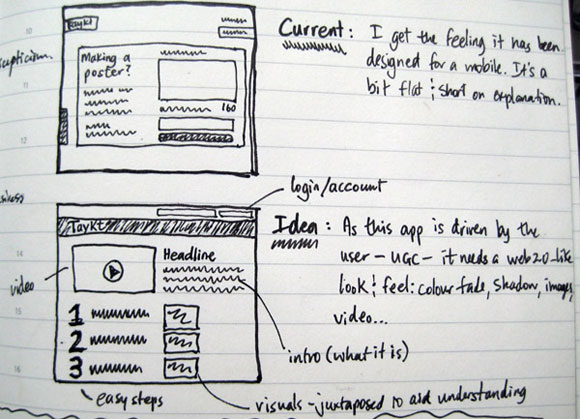 Taykt
Making a
poster?
160
Current: I get the feeling it has been
designed for a mobile. It's a
bit flat & short on explanation.
login/account
Taykt
Headline
video
1
2
3
intro (what it is)
easy steps
visuals - juxtaposed to aid understanding
Idea: As this app is driven by the
user - UGC - it needs a web2.0-like
look & feel: colour fade, shadow, images,
video...
10
11
12
14
15
16